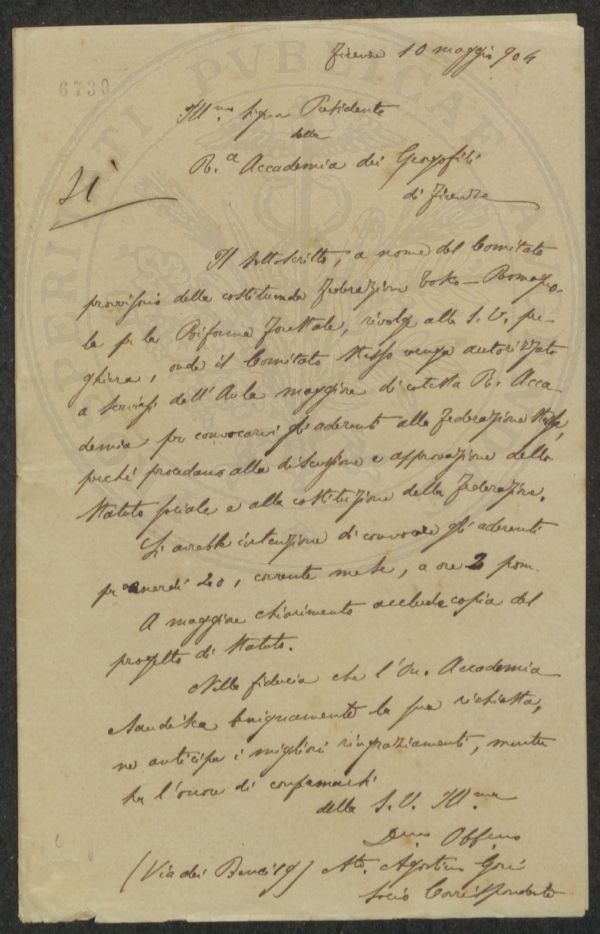 6730
Firenze 10 maggio 904
Ill.mo Signor Presidente
della
R.a Accademia dei Georgofili
di Firenze
Sì
Il sottoscritto, a nome del Comitato
provvisorio della costituenda Federazione Tosco-Romagno-
la per la Riforma Forestale, rivolge alla S.V. pre-
ghiera, onde il Comitato stesso venga autorizzato
a servirsi dell'Aula maggiore di cotesta R. Acca-
demia per convocarvi gli aderenti alla Federazione stessa,
perché procedano alla discussione e approvazione dello
Statuto sociale e alla costituzione della Federazione.
Si avrebbe intenzione di convocare gli aderenti
per venerdì 20, corrente mese, a ore 2 pom.
A maggiore chiarimento acclude copia del
progetto di Statuto.
Nella fiducia che l'On. Accademia
esaudisca benignamente la sua richiesta,
ne anticipa i migliori ringraziamenti, mentre
ha l'onore di confermarsi
della S.V. Ill.ma
Dev.mo Obb.mo
(Via dei Benci 19) Avv. Agostino Gori
Socio Corrispondente
PERITATI PVBLICAE